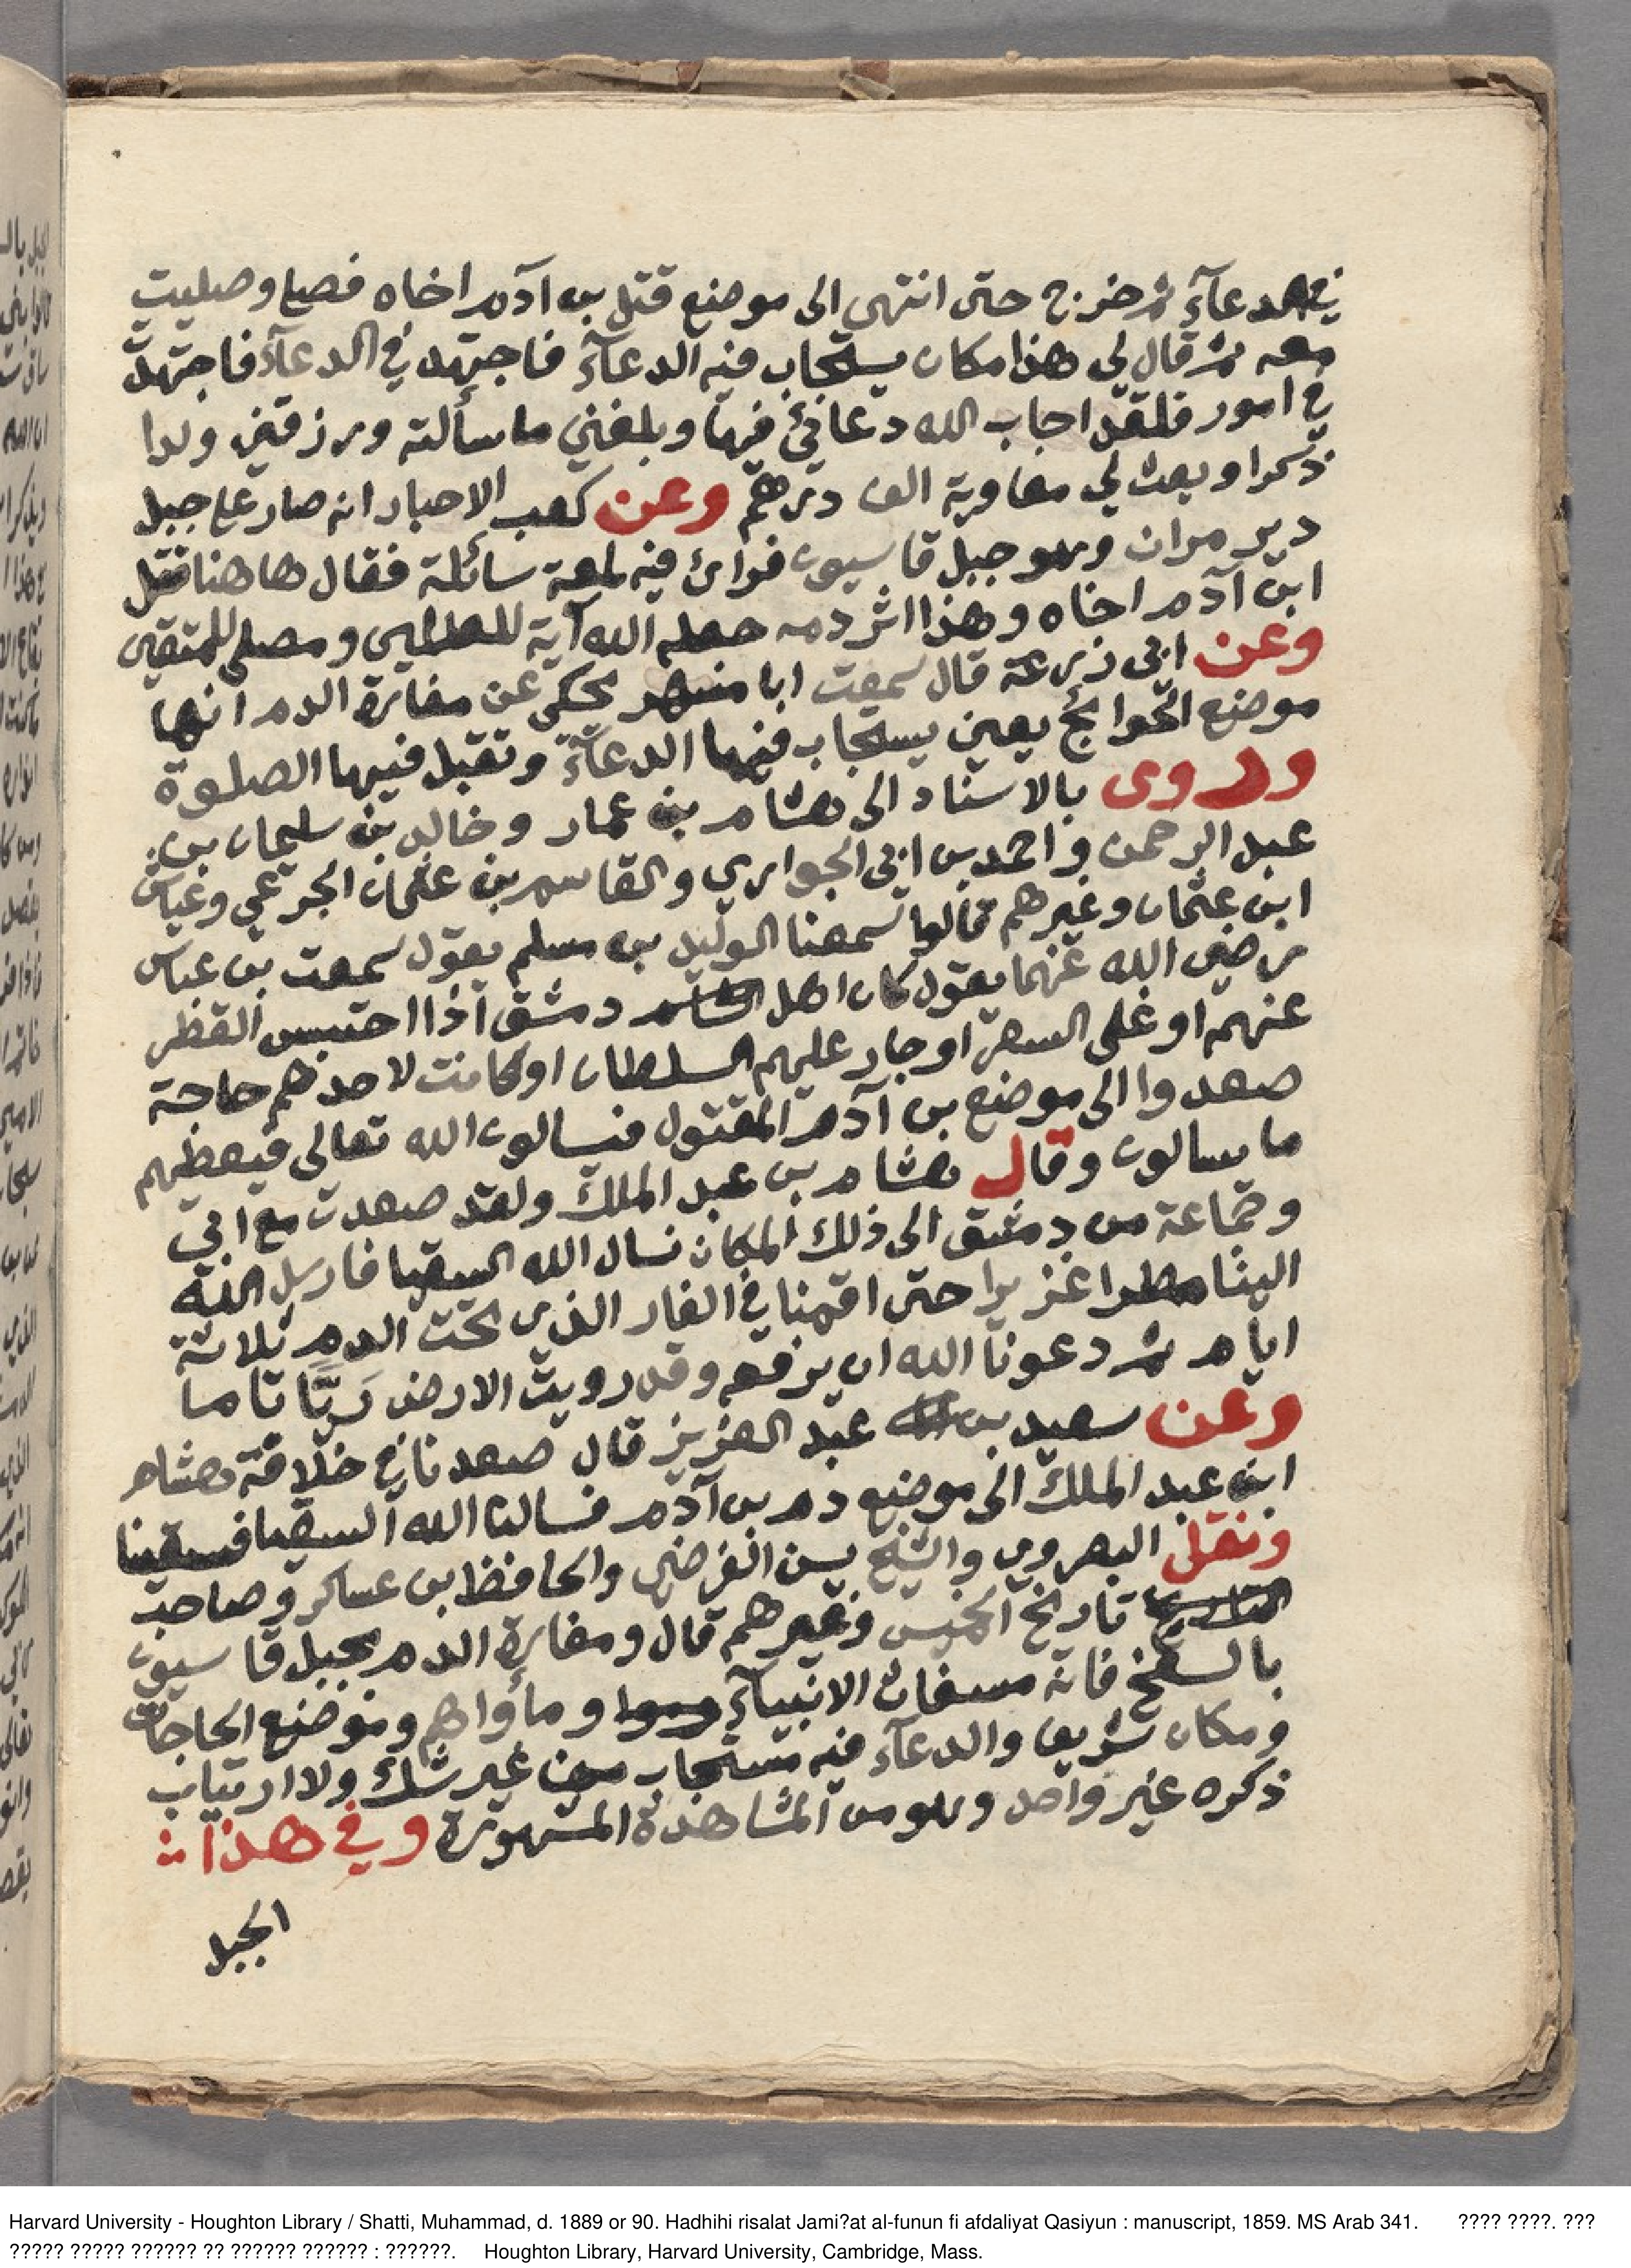 في الدعآء ثم خرج حتى انتهى الى موضع قتل بن آدم اخاه فصلى وصليت
معه ثم قال لي هذا مكان يستجاب فيه الدعآء فاجتهد في الدعآء فاجتهدت
في امور فلقد اجاب الله دعائي فيها وبلغني ما سألته ورزقني ولدا
ذكرا وبعث لي معاوية الف درهم وعن كعب الاحبار انه صار على جبل
دير مران وهو جبل قاسيون فرائ فيه لمعة سائلة فقال ها هنا قتل
ابن آدم اخاه وهذا اثر دمه جعله الله آية للعالمين ومصلى للمتقين
وعن ابي زرعة قال سمعت ابا مسهر يحكي عن مغارة الدم انها
موضع الحوائج يعني يستجاب فيها الدعآء وتقبل فيها الصلوة
وروى بالاسناد الى هشام بن عمار وخالد بن سليمان بن
عبد الرحمن واحمد بن ابي الحواري والقاسم بن عثمان الجرعي وعباس
ابن عثمان وغيرهم قالوا سمعنا الوليد بن مسلم يقول سمعت بن عباس
رضي الله عنهما يقول كان اهل دمشق اذا احتبس القطر
عنهم او غلى السعر او جار عليهم السلطان او كانت لاحدهم حاجة
صعدوا الى موضع بن آدم المقتول فيسالون الله تعالى فيعطيهم
ما يسالون وقال هشام بن عبد الملك ولقد صعدت مع ابي
وجماعة من دمشق الى ذلك المكان نسال الله السقيا فارسل الله
الينا مطرا غزيرا حتى اقمنا في الغار الذي تحت الدم ثلاثة
ايام ثم دعونا الله ان يرفعه وقد رويت الارض رَيًّا تاما
وعن سعيد بن عبد العزيز قال صعدنا في خلافة هشام
ابن عبد الملك الى موضع دم بن آدم فسالنا الله السقيا فسقينا
ونقل الهروي والشيخ يسن الفرضي والحافظ بن عساكر وصاحب
تاريخ الخميس وغيرهم قال ومغارة الدم بجبل قاسيون
بالسفح فانه الانبيآء ومأواهم وموضع الحاجات
ومكان شريف والدعآء فيه مستجاب من غير شك ولا ارتياب
ذكره غير واحد وهو من المشاهدة المشهورة وفي هذا
الجبل
Harvard University - Houghton Library / Shatti, Muhammad, d. 1889 or 90. Hadhihi risalat Jami?at al-funun fi afdaliyat Qasiyun : manuscript, 1859. MS Arab 341. ???? ????. ???
????? ????? ?????? ?? ?????? ?????? : ??????. Houghton Library, Harvard University, Cambridge, Mass.